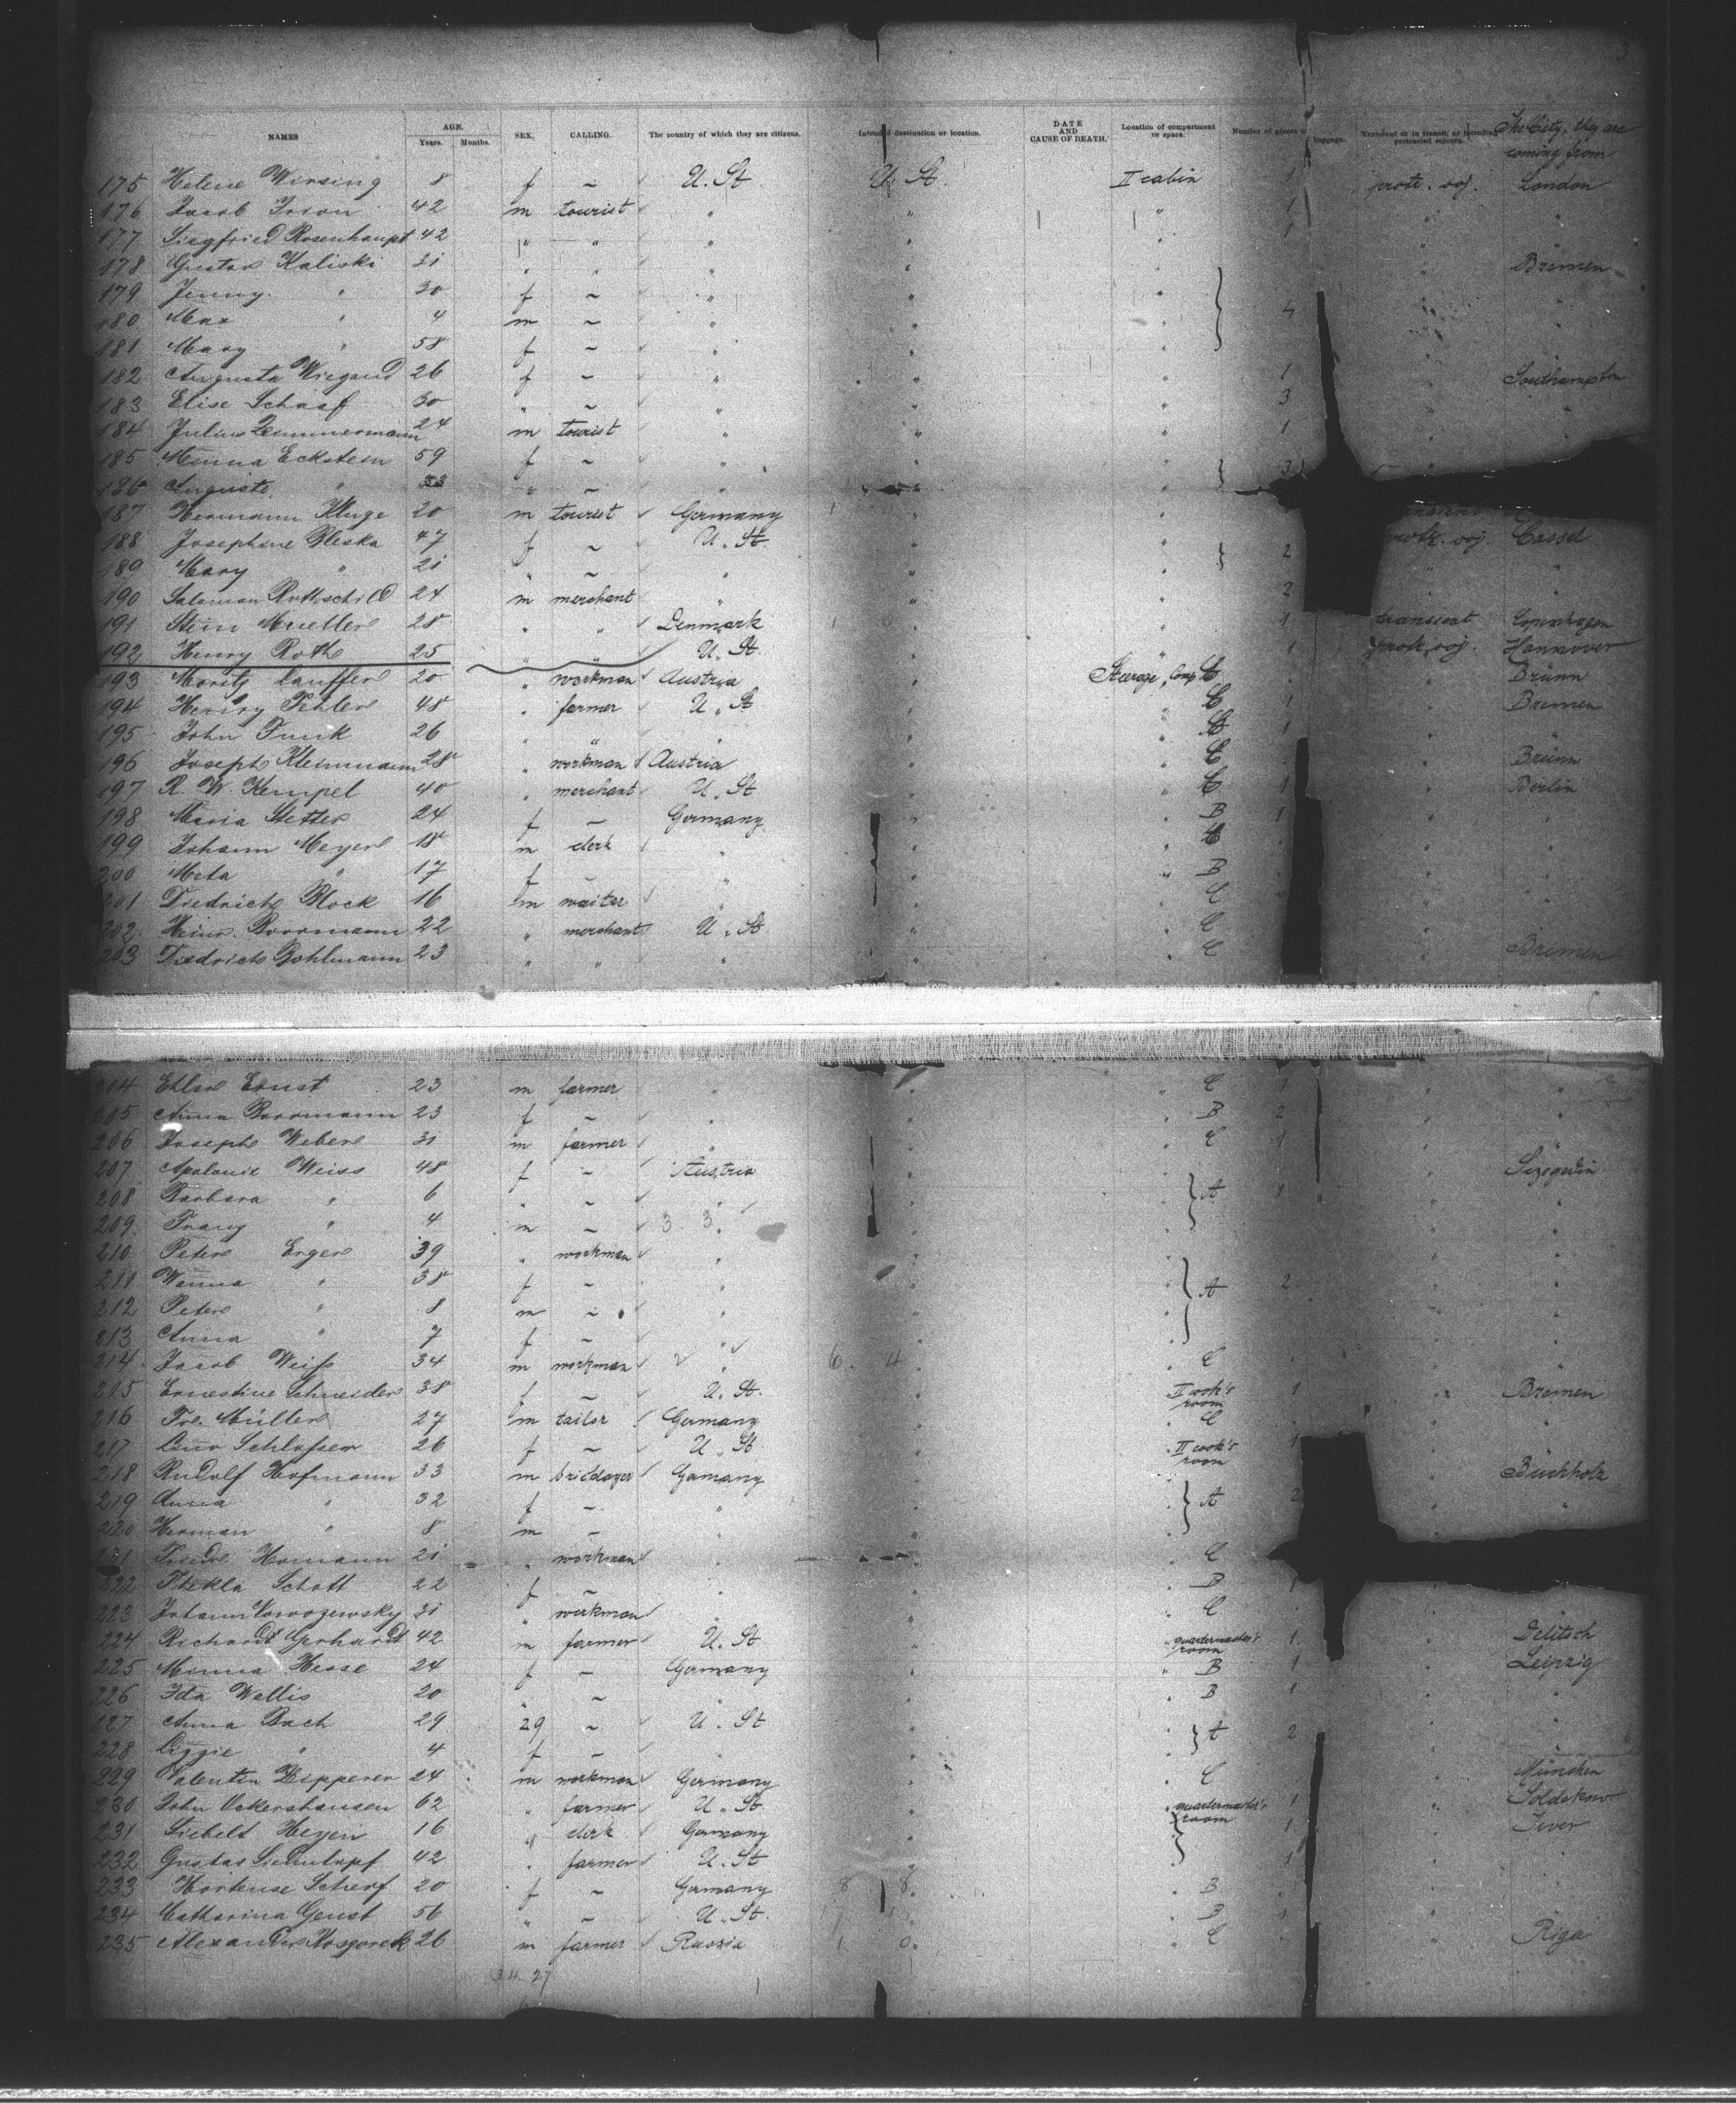 3
NAMES AGE. Years. Months. SEX. CALLING. The country of which they are citizens. Intended destination or location. DATE AND CAUSE OF DEATH. Location of compartment or space. Number of pieces of baggage. Transient or in transit, or intending protracted sojourn. The City, they are coming from
175 Helene Wirsing 8 f ~ U. St. U. St. II cabin 1 protr. soj. London
176 Jacob 42 m tourist " " " 1 " "
177 Siegfried Rosenhaupt 42 " " " " " 1 " "
178 Gustav Kaliski 31 " " " " " " Bremen
179 Jenny " 30 f ~ " " " " "
180 Max " 4 m ~ " " " 4 " "
181 Mary " 58 f ~ " " " " "
182 Augusta Wiegand 26 f ~ " " " 1 " Southampton
183 Elise Scharf 30 " ~ " " " 3 " "
184 Julius Zimmermann 24 m tourist " " " 1 " "
185 Minna Eckstein 59 f ~ " " " 3 "
186 Auguste " 33 " ~ " " "
187 Hermann Kluge 20 m tourist Germany " "
188 Josephine Pleska 47 f ~ U. St. " " 2 protr. soj. Cassel
189 Mary " 21 " ~ " " " " "
190 Salaman Rothschild 24 m merchant " " " 2 " "
191 Stein Mueller 28 " " Denmark " " 1 transient Copenhagen
192 Henry Roth 25 " " U. St. " " 1 protr. soj. Hannover
193 Moritz Lauffer 20 " workman Austria " Steerage, Comp C " " Brünn
194 Henry Pehler 48 " farmer U. St " " C 1 " Bremen
195 John Funk 26 " " " " " C 1 " "
196 Joseph Kleinmann 28 " workman Austria " " C " Brünn
197 R. W. Kempel 40 " merchant U. St " " C 1 " Berlin
198 Maria Stetter 24 f ~ Germany " " B 1 " "
199 Johann Meyer 18 m clerk " " " C " "
200 Meta " 17 f ~ " " " B " "
201 Diedrich Block 16 m waiter " " " C " "
202 Heinr. Borrmann 22 " merchant U. St " " C " "
203 Diedrich Gohlmann 23 " " " " " C " Bremen
204 Ehler Ernst 23 m farmer " " " C 1 " "
205 Anna Borrmann 23 f ~ " " " B 2 " "
206 Joseph Weber 31 m farmer " " " C 1 " "
207 Apolonie Weiss 48 f ~ Austria " " " Szegedin
208 Barbara " 6 " ~ " " " A 1 " "
209 Franz " 4 m ~ 3 3 " " " "
210 Peter Erger 39 " workman " " " " "
211 Wanna " 38 f ~ " " " A 2 " "
212 Peter " 8 m ~ " " " " "
213 Anna " 7 f ~ " " " " "
214 Jacob Weiss 34 m workman " 6. 4 " " C " "
215 Ernestine Schneider 38 f ~ U. St. " II cook's room 1 " Bremen
216 Fr. Müller 27 m tailor Germany " " C " "
217 Lina Schlossen 26 f ~ U. St " " II cook's room 1 " "
218 Rudolf Hofmann 33 m Germany " " " Buchholz
219 Anna " 32 f ~ " " " A 2 " "
220 Herman " 8 m ~ " " "
221 Friedr. Homann 21 " workman " " " C
222 Thekla Schott 22 f ~ " " " B 1
223 Johann 31 " workman " " " C
224 Richard Gerhardt 42 m farmer U. St " " quartermaster's room 1 " Delitsch
225 Minna Hesse 24 f ~ Germany " " B 1 " Leipzig
226 Ida Wallis 20 " ~ " " " B 1 " "
127 Anna Bach 29 29 ~ U. St " " A 2 " "
228 Lizzie " 4 f ~ " " " " "
229 Valentin Zipperer 24 m workman Germany " " C " München
230 John Ockershausen 62 " farmer U. St " " quartermaster's room 1 " Soldekow
231 Siebelt Heyen 16 " clerk Germany " " 1 " Jever
232 Gustav Siebentopf 42 " farmer U. St " " 1 " "
233 Hortense Scherf 20 f ~ Germany 8 8 " " B " "
234 Catharina Genst 56 " ~ U. St. " " B 1 " "
235 Alexander 26 m farmer Russia 1 0 " " C " Riga
34. 27